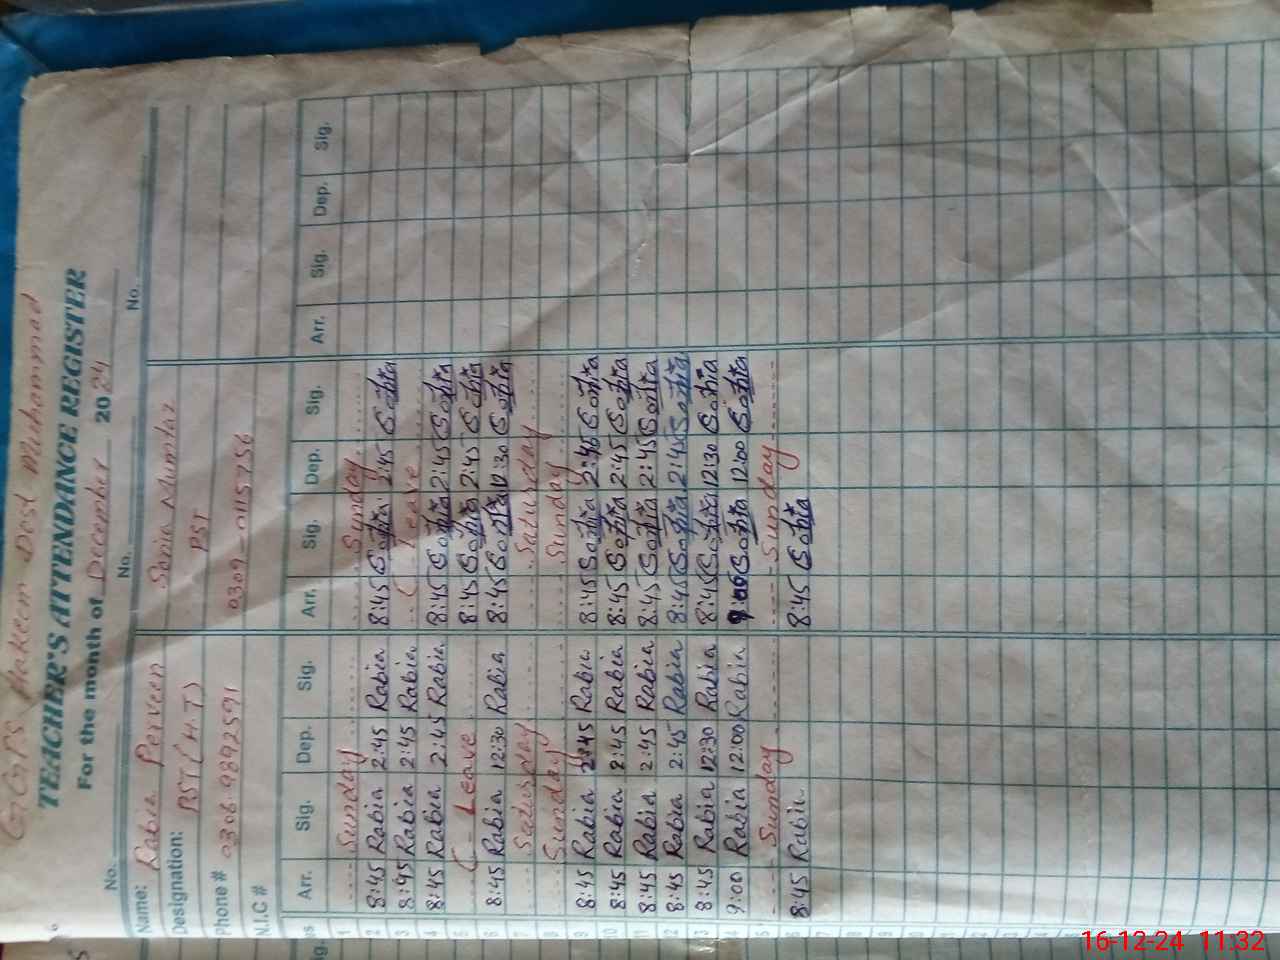 GGPS Hakeem Dost Muhammad
TEACHER'S ATTENDANCE REGISTER
For the month of December 2024
No. No. No.
Name: Rabia Perveen Sonia Mumtaz
Designation: PST (H.T) PST
Phone # 0306-9892591 0309-0115756
N.I.C #
Arr. Sig. Dep. Sig. Arr. Sig. Dep. Sig. Arr. Sig. Dep. Sig.
1 Sunday Sunday
2 8:45 Rabia 2:45 Rabia 8:45 Sonia 2:45 Sonia
3 8:45 Rabia 2:45 Rabia Leave
4 8:45 Rabia 2:45 Rabia 8:45 Sonia 2:45 Sonia
5 Leave 8:45 Sonia 2:45 Sonia
6 8:45 Rabia 12:30 Rabia 8:45 Sonia 12:30 Sonia
7 Saturday Saturday
8 Sunday Sunday
9 8:45 Rabia 2:45 Rabia 8:45 Sonia 2:45 Sonia
10 8:45 Rabia 2:45 Rabia 8:45 Sonia 2:45 Sonia
11 8:45 Rabia 2:45 Rabia 8:45 Sonia 2:45 Sonia
12 8:45 Rabia 2:45 Rabia 8:45 Sonia 2:45 Sonia
13 8:45 Rabia 12:30 Rabia 8:45 Sonia 12:30 Sonia
14 9:00 Rabia 12:00 Rabia 9:00 Sonia 12:00 Sonia
15 Sunday Sunday
16 8:45 Rabia 8:45 Sonia
16-12-24 11:32